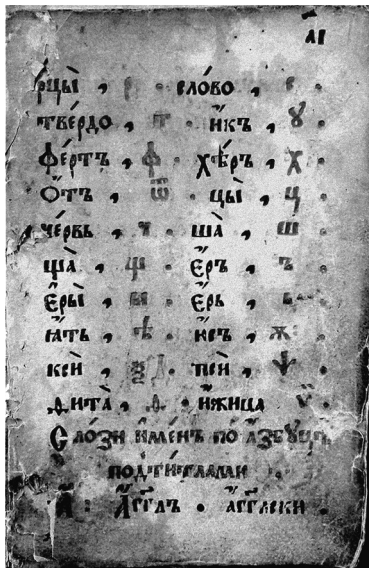 а҃і
рцы̀ , р · сло́во , с ·
тве́рдо , т · и҆́къ , ꙋ ·
фе́ртъ , ф · хѣ́ръ , х ·
ѿ́тъ , ѿ · цы̀ , ц ·
че́рвь , ч · ша̀ , ш ·
ща̀ , щ · е҆́ръ , ъ ·
е҆ры̀ , ы · е҆́рь , ь ·
ꙗ҆́ть , ѣ · ю҆́съ , ѫ ·
ѯѝ , ѯ · ѱѝ , ѱ ·
ѳита̀ , ѳ · и҆́жица , ѵ ·
Сло́зи и҆ме́нъ по а҆́збꙋцѣ
под̾ ти́тлами
а҃ : А҆́гг҃лъ · а҆́гг҃лски ·